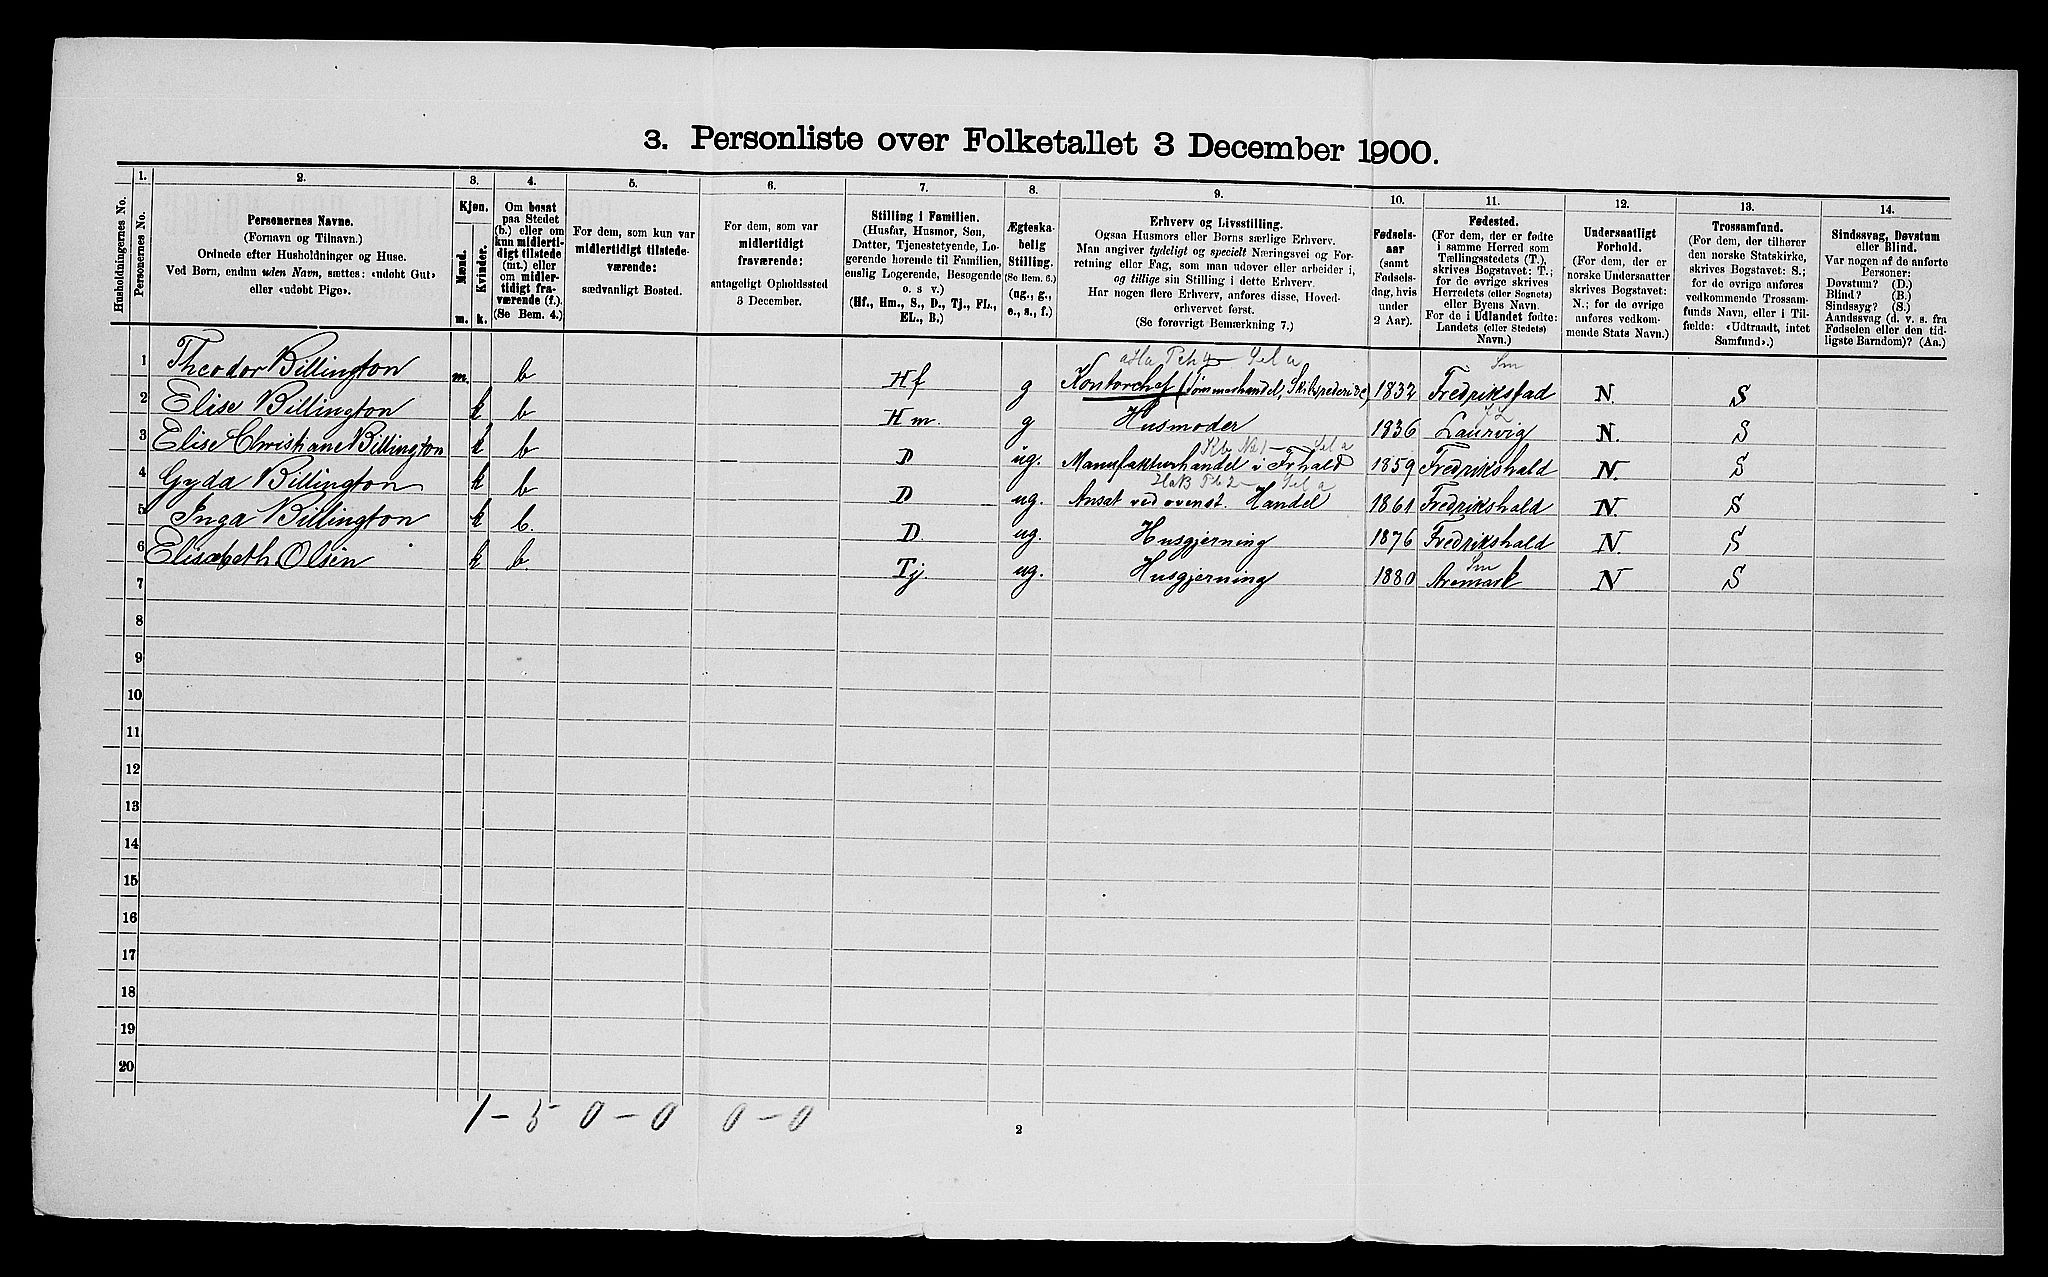 3. Personliste over Folketallet 3 December 1900.
1. 2. 3. 4. 5. 6. 7. 8. 9. 10. 11. 12. 13. 14.
Husholdningernes No.
Personernes No.
Personernes Navne.
(Fornavn og Tilnavn.)
Ordnede efter Husholdninger og Huse.
Ved Børn, endnu uden Navn, sættes: «udøbt Gut»
eller «udøbt Pige».
Kjøn.
Mænd.
Kvinder.
m. k.
Om bosat
paa Stedet
(b.) eller om
kun midlerti-
digt tilstede
(mt.) eller
om midler-
tidigt fra-
værende (f.).
(Se Bem. 4.)
For dem, som kun var
midlertidigt tilstede-
værende:
sædvanligt Bosted.
For dem, som var
midlertidigt
fraværende:
antageligt Opholdssted
3 December.
Stilling i Familien.
(Husfar, Husmor, Søn,
Datter, Tjenestetyende, Lo-
gerende hørende til Familien,
enslig Logerende, Besøgende
o. s v.)
(Hf., Hm., S., D., Tj., FL.,
EL., B.)
Ægteska-
belig
Stilling.
(Se Bem. 6.)
(ug., g.,
e., s., f.)
Erhverv og Livsstilling.
Ogsaa Husmors eller Børns særlige Erhverv.
Man angiver tydeligt og specielt Næringsvei og For-
retning eller Fag, som man udøver eller arbeider i,
og tillige sin Stilling i dette Erhverv.
Har nogen flere Erhverv, anføres disse, Hoved-
erhvervet først.
(Se forøvrigt Bemærkning 7.)
Fødsels-
aar
(samt
Fødsels-
dag, hvis
under
2 Aar).
Fødested.
(For dem, der er fødte
i samme Herred som
Tællingsstedets (T.),
skrives Bogstavet: T.;
for de øvrige skrives
Herredets (eller Sognets)
eller Byens Navn.
For de i Udlandet fødte:
Landets (eller Stedets)
Navn.)
Undersaatligt
Forhold.
(For dem, der er
norske Undersaatter
skrives Bogstavet:
N.; for de øvrige
anføres vedkom-
mende Stats Navn.)
Trossamfund.
(For dem, der tilhører
den norske Statskirke,
skrives Bogstavet: S.;
for de øvrige anføres
vedkommende Trossam-
funds Navn, eller i Til-
fælde: «Udtraadt, intet
Samfund».)
Sindssvag, Døvstum
eller Blind.
Var nogen af de anførte
Personer:
Døvstum? (D.)
Blind? (B.)
Sindssyg? (S.)
Aandssvag (d. v. s. fra
Fødselen eller den tid-
ligste Barndom)? (Aa.)
1 Theodor Billington m. b Hf g Kontorchef (Tømmerhandel, Skibsrederi &c) 1832 Fredriksstad N. S
2 Elise Billington k b Hm. g Husmoder 1836 Laurvig N. S
3 Elise Christiane Billington k b D ug. Manufakturhandel i Frhald 1859 Fredrikshald N. S
4 Gyda Billington k b D ug. Ansat ved ovenst. Handel 1861 Fredrikshald N. S
5 Inga Billington k b. D ug. Husgjerning 1876 Fredrikshald N. S
6 Elisabeth Olsen k b. Tj. ug. Husgjerning 1880 Aremark N S
7
8
9
10
11
12
13
14
15
16
17
18
19
20
1 - 5 0 - 0 0 - 0
2